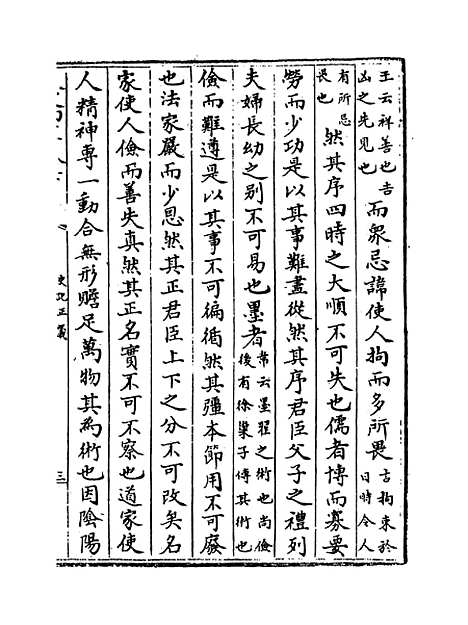 王云祥善也吉
凶之先見也
而眾忌諱使人拘而多所畏
言拘束於
日時令人
有所忌
畏也
然其序四時之大順不可失也儒者博而寡要
勞而少功是以其事難盡從然其序君臣父子之禮列
夫婦長幼之别不可易也墨者
韋云墨翟之術也尚儉
後有徐巢子傳其術也
儉而難遵是以其事不可徧循然其彊本節用不可廢
也法家嚴而少恩然其正君臣上下之分不可改矣名
家使人儉而善失真然其正名實不可不察也道家使
人精神專一動合無形贍足萬物其為術也因隂陽
史記正義
三